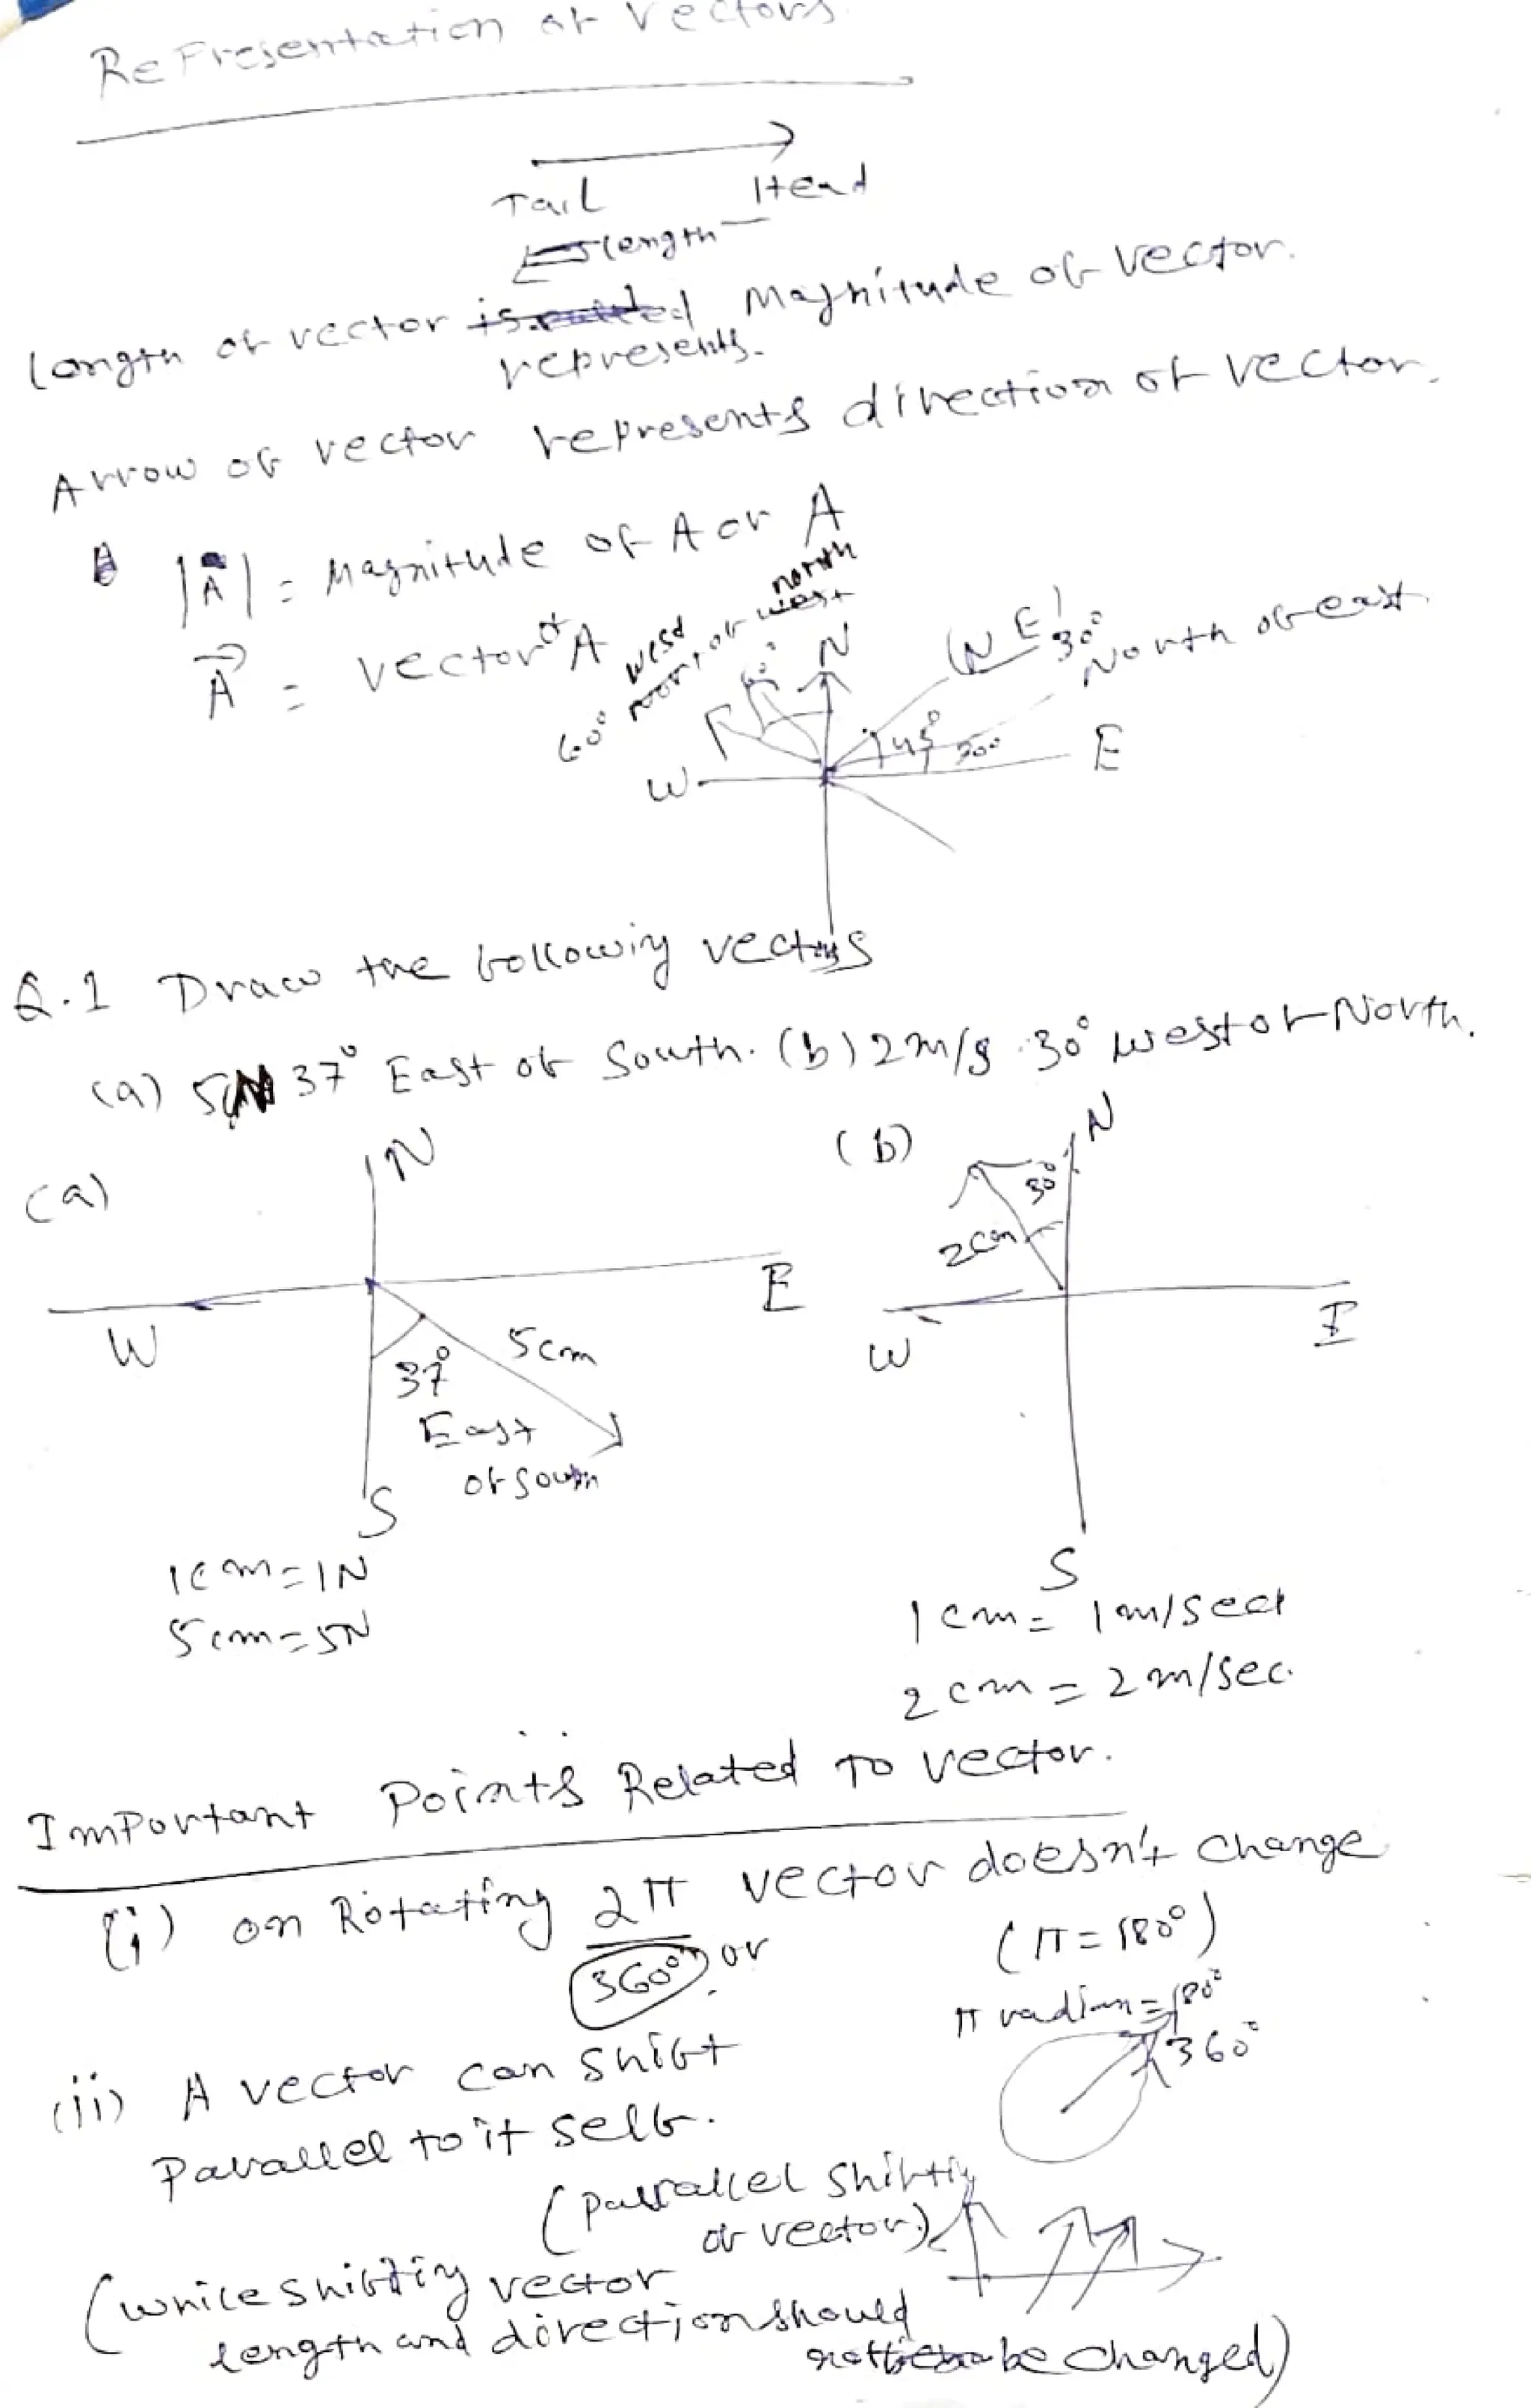 Representation of Vectors
Tail Head
length
length of vector represents Magnitude of vector.
Arrow of vector represents direction of vector.
|A| = Magnitude of A or A
A = vector of A
60° west of north
N
(NE)
30° North of east
45°
30°
W
E
S
Q.1 Draw the following vectors
(a) 5N 37° East of South. (b) 2m/s 30° west of North.
(a)
N
W
E
S
5cm
37°
East
of south
1cm=1N
5cm=5N
(b)
N
30°
2cm
W
E
S
1cm = 1m/sec
2cm = 2m/sec.
Important Points Related To vector.
(i) on Rotating 2π vector doesn't change
360° or
(π = 180°)
π radian = 180°
360°
(ii) A vector can shift
Parallel to it self.
(parallel shifting
of vector.)
(while shifting vector
length and direction should
not be changed)